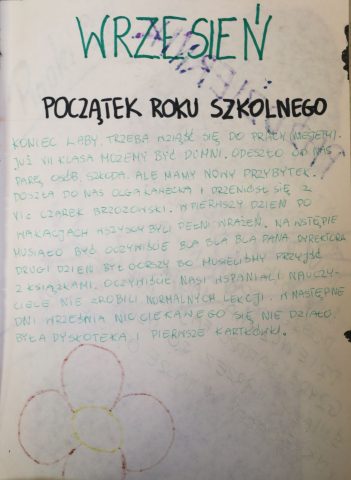 WRZESIEŃ
POCZĄTEK ROKU SZKOLNEGO
KONIEC LABY. TRZEBA WZIĄŚĆ SIĘ DO PRACY (NIESTETY).
JUŻ VII KLASA MOŻEMY BYĆ DUMNI. ODESZŁO OD NAS
PARĘ OSÓB, SZKODA. ALE MAMY NOWY PRZYBYTEK.
DOSZŁA DO NAS OLGA I PRZENIÓSŁ SIĘ Z
VI C CZAREK BRZOZOWSKI. W PIERWSZY DZIEŃ PO
WAKACJACH WSZYSCY BYLI PEŁNI WRAŻEŃ. NA WSTĘPIE
MUSIAŁO BYĆ OCZYWIŚCIE BLA BLA BLA PANA DYREKTORA
DRUGI DZIEŃ BYŁ GORSZY BO MUSIELIŚMY PRZYJŚĆ
Z KSIĄŻKAMI. OCZYWIŚCIE NASI WSPANIALI NAUCZY-
CIELE NIE ZROBILI NORMALNYCH LEKCJI. W NASTĘPNE
DNI WRZEŚNIA NIC CIEKAWEGO SIĘ NIE DZIAŁO.
BYŁA DYSKOTEKA I PIERWSZE KARTKÓWKI.